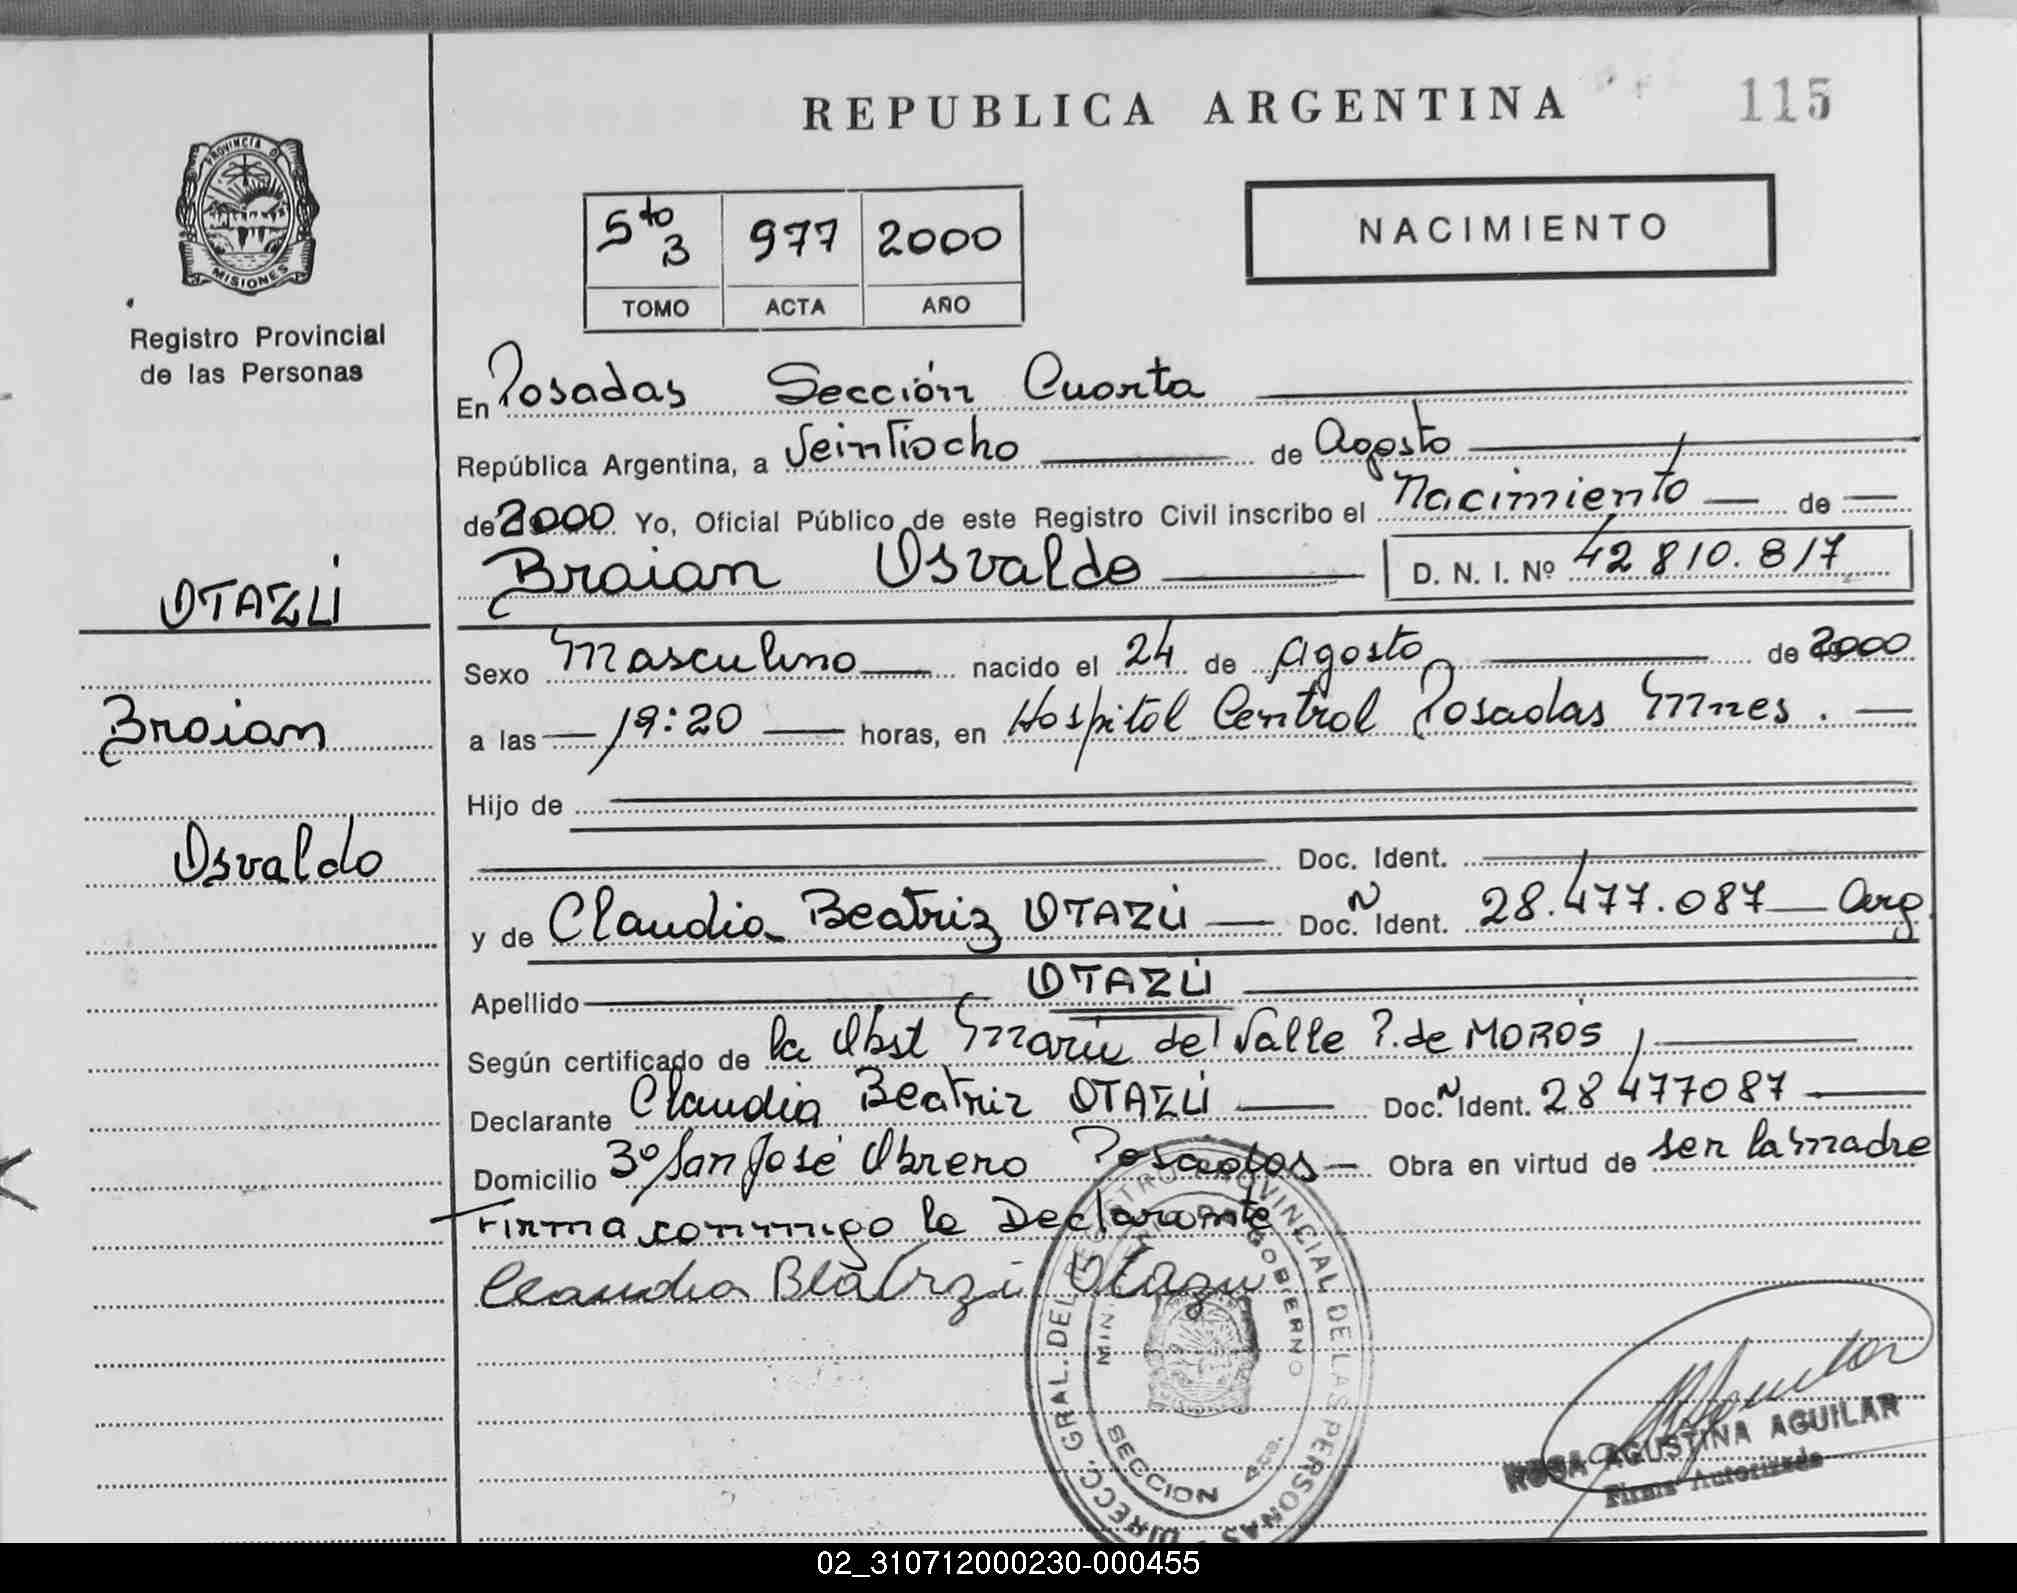 REPUBLICA ARGENTINA
115
PROVINCIA D
MISIONES
Registro Provincial
de las Personas
5to 3 977 2000
TOMO ACTA AÑO
NACIMIENTO
En Posadas Sección Cuarta
República Argentina, a Veintiocho de Agosto
de 2000 Yo, Oficial Público de este Registro Civil inscribo el Nacimiento de
Braian Osvaldo D. N. I. Nº 42 810.817
OTAZÚ
Braian
Osvaldo
Sexo Masculino nacido el 24 de Agosto de 2000
a las 19:20 horas, en Hospital Central Posadas Mnes.
Hijo de
Doc. Ident.
y de Claudia Beatriz OTAZÚ Doc. N Ident. 28.477.087 Arg.
Apellido OTAZÚ
Según certificado de la Obst María del Valle P. de MOROS
Declarante Claudia Beatriz OTAZÚ Doc. N Ident. 28 477087
Domicilio Bº San José Obrero Posadas Obra en virtud de ser la madre
Firma conmigo la Declarante
Claudia Beatriz Otazu
DIRECC. GRAL. DEL REGISTRO PROVINCIAL DE LAS PERSONAS
GOBIERNO
SECCION 4ta.
ROSA AGUSTINA AGUILAR
Firma Autorizada
02_310712000230-000455